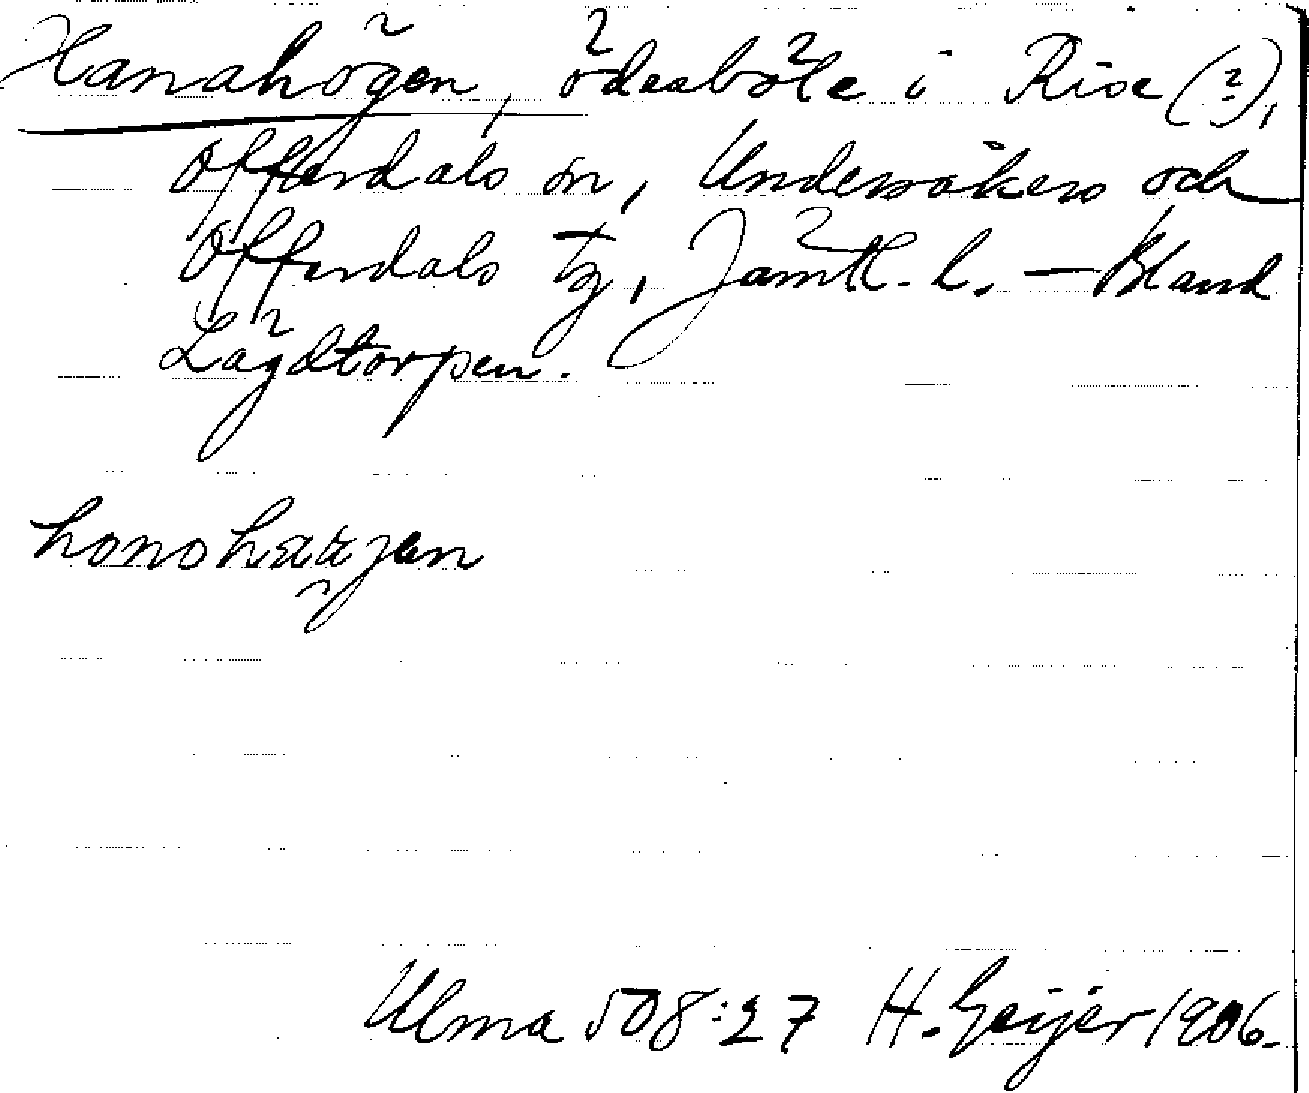 Hanahögen, ödesböle i Rise (?),
Offerdals sn, Undersåkers och
Offerdals tg, Jämtl. l. – Bland
Lägdtorpen.
honohææjen
Ulma 508:27 H. Geijer 1906.